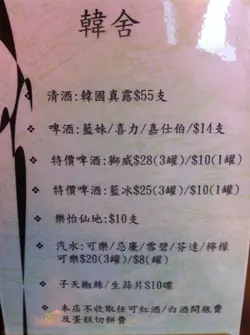 韓舍
❖ 清酒:韓國真露$55支
❖ 啤酒:藍妹/喜力/嘉仕伯/$14支
❖ 特價啤酒:獅威$28(3罐)/$10(1罐)
❖ 特價啤酒:藍冰$25(3罐)/$10(1罐)
❖ 樂怡仙地:$10支
❖ 汽水:可樂/忌廉/雪碧/芬達/檸檬
可樂$20(3罐)/$8(罐)
❖ 子天椒絲/生蒜片$10碟
❖ 本店不收取任可紅酒/白酒開瓶費
及蛋糕切餅費